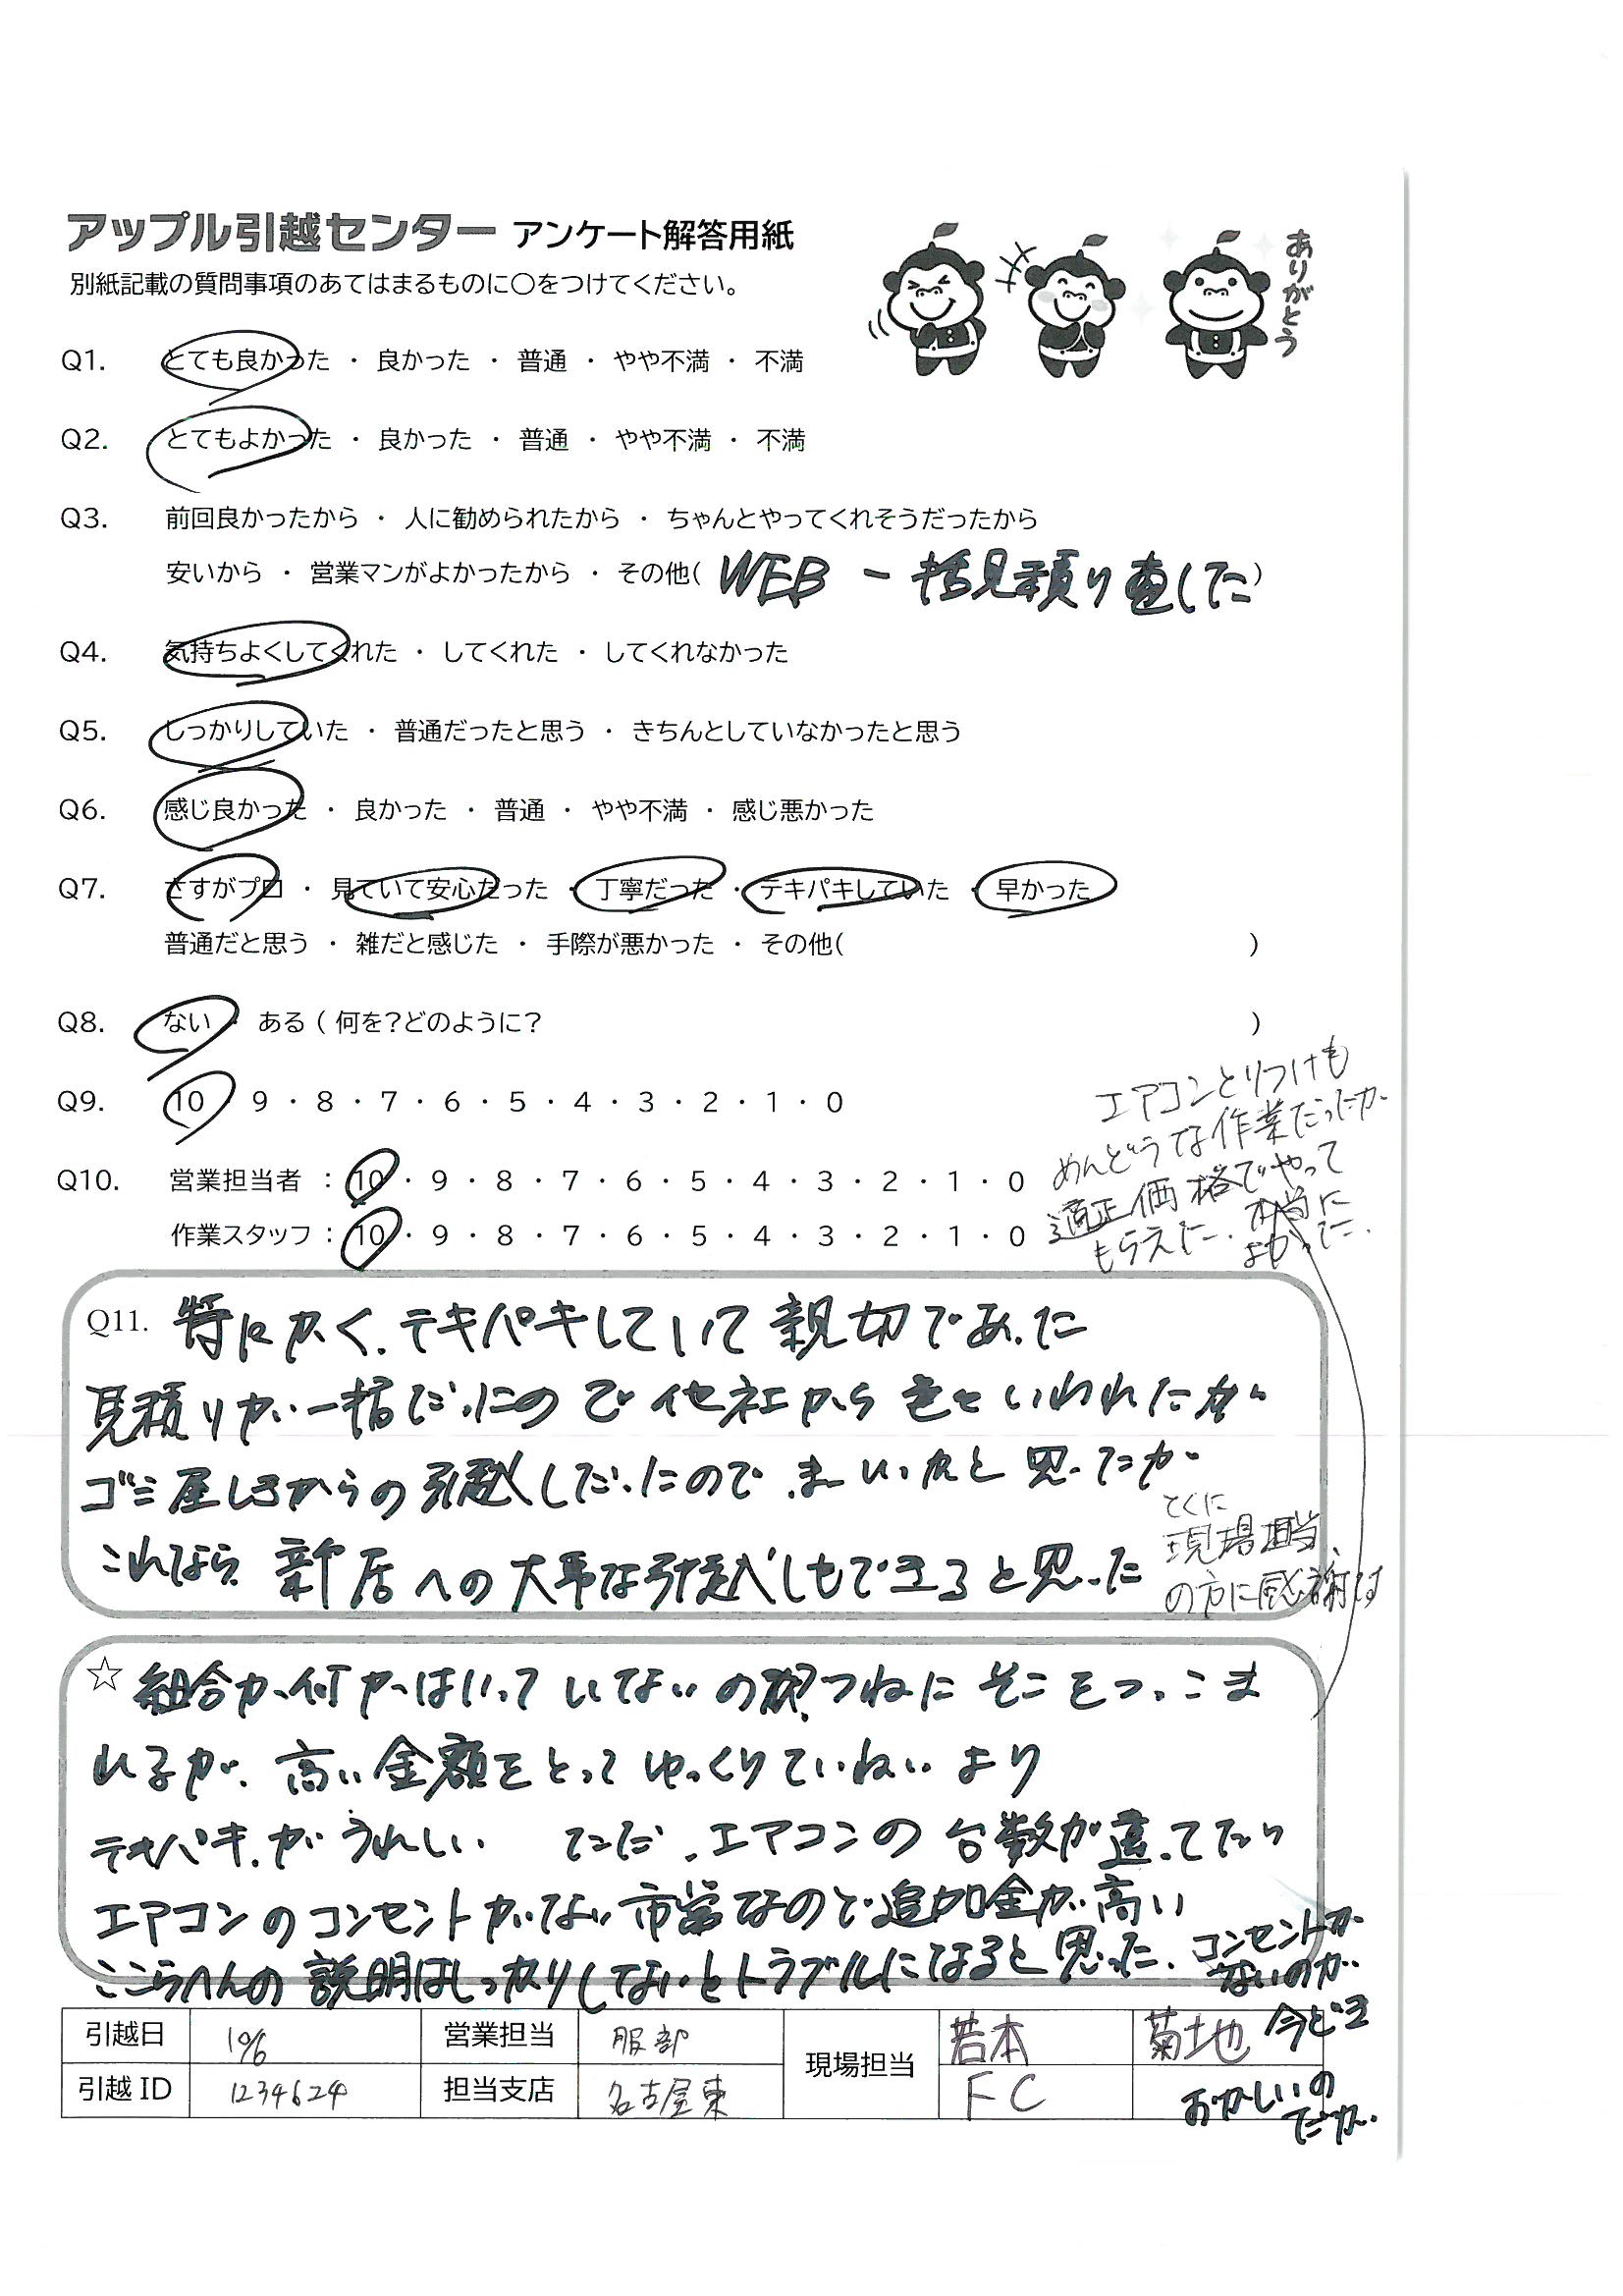 アップル引越センター アンケート解答用紙
別紙記載の質問事項のあてはまるものに○をつけてください。
ありがとう
Q1. とても良かった ・ 良かった ・ 普通 ・ やや不満 ・ 不満
Q2. とてもよかった ・ 良かった ・ 普通 ・ やや不満 ・ 不満
Q3. 前回良かったから ・ 人に勧められたから ・ ちゃんとやってくれそうだったから
安いから ・ 営業マンがよかったから ・ その他( WEB 一括見積り直した )
Q4. 気持ちよくしてくれた ・ してくれた ・ してくれなかった
Q5. しっかりしていた ・ 普通だったと思う ・ きちんとしていなかったと思う
Q6. 感じ良かった ・ 良かった ・ 普通 ・ やや不満 ・ 感じ悪かった
Q7. さすがプロ ・ 見ていて安心だった ・ 丁寧だった ・ テキパキしていた ・ 早かった
普通だと思う ・ 雑だと感じた ・ 手際が悪かった ・ その他( )
Q8. ない ・ ある ( 何を?どのように? )
Q9. 10 ・ 9 ・ 8 ・ 7 ・ 6 ・ 5 ・ 4 ・ 3 ・ 2 ・ 1 ・ 0
Q10. 営業担当者 : 10 ・ 9 ・ 8 ・ 7 ・ 6 ・ 5 ・ 4 ・ 3 ・ 2 ・ 1 ・ 0
作業スタッフ : 10 ・ 9 ・ 8 ・ 7 ・ 6 ・ 5 ・ 4 ・ 3 ・ 2 ・ 1 ・ 0
エアコンとりつけも
めんどうな作業だったが
適正価格でやって
もらえた. 本当に
よかった.
Q11. 特に テキパキしていて親切であった
見積りが一括だったので他社から いわれたが
ゴミ屋しきからの引越しだったので、まいいかと思ったが
これなら 新居への大事な引越しもできると思った
とくに
現場担当
の方に感謝です
☆ 組合か何かはいっていないの つねにそこをつっこま
れるが、高い金額をとってゆっくりていねいより
テキパキがうれしい ただ、エアコンの台数が違ってたり
エアコンのコンセントがない市営なので追加金が高い
ここらへんの説明はしっかりしないとトラブルになると思った.
コンセントが
ないのが
今どき
おかしいの
だが.
引越日 10/6 営業担当 服部 現場担当 若本 菊地
引越ID 1234624 担当支店 名古屋東 FC